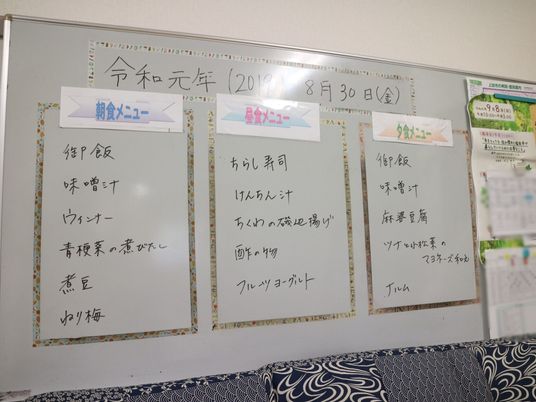 令和元年(2019) 8月30日(金)
朝食メニュー
御飯
味噌汁
ウィンナー
青梗菜の煮びたし
煮豆
ねり梅
昼食メニュー
ちらし寿司
けんちん汁
ちくわの磯辺揚げ
酢の物
フルーツヨーグルト
夕食メニュー
御飯
味噌汁
麻婆豆腐
ツナと小松菜の
マヨネーズ和え
9月8日